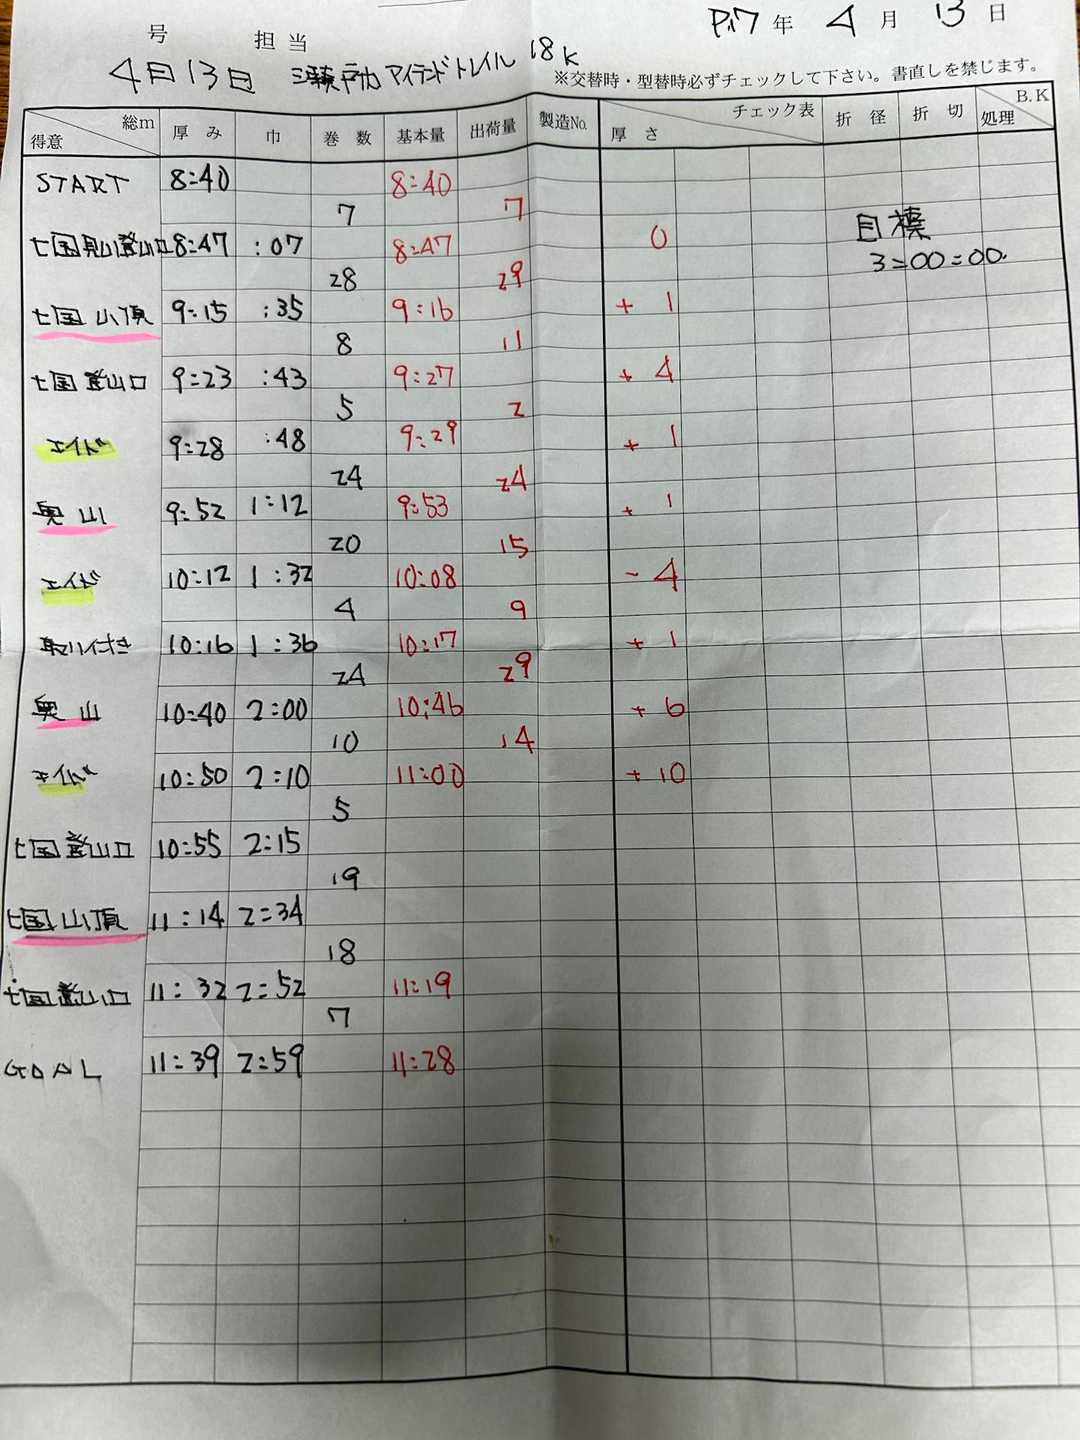 年 4 月 13 日
号 担当
4月13日 アイランドトレイル 18K
※交替時・型替時必ずチェックして下さい。書直しを禁じます。
得意 総m 厚み 巾 巻数 基本量 出荷量 製造No. 厚さ チェック表 折径 折切 処理 B.K
START 8:40 8:40
7 7
七国見山登山口 8:47 :07 8:47 0
目標
3=00=00.
28 29
七国山頂 9:15 :35 9:16 + 1
8 11
七国登山口 9:23 :43 9:27 + 4
5 2
エイド 9:28 :48 9:29 + 1
24 24
奥山 9:52 1:12 9:53 + 1
20 15
エイド 10:12 1:32 10:08 - 4
4 9
取り付き 10:16 1:36 10:17 + 1
24 29
奥山 10:40 2:00 10:46 + 6
10 14
エイド 10:50 2:10 11:00 + 10
5
七国登山口 10:55 2:15
19
七国山頂 11:14 2=34
18
七国登山口 11:32 2=52 11:19
7
GOAL 11:39 2=59 11:28